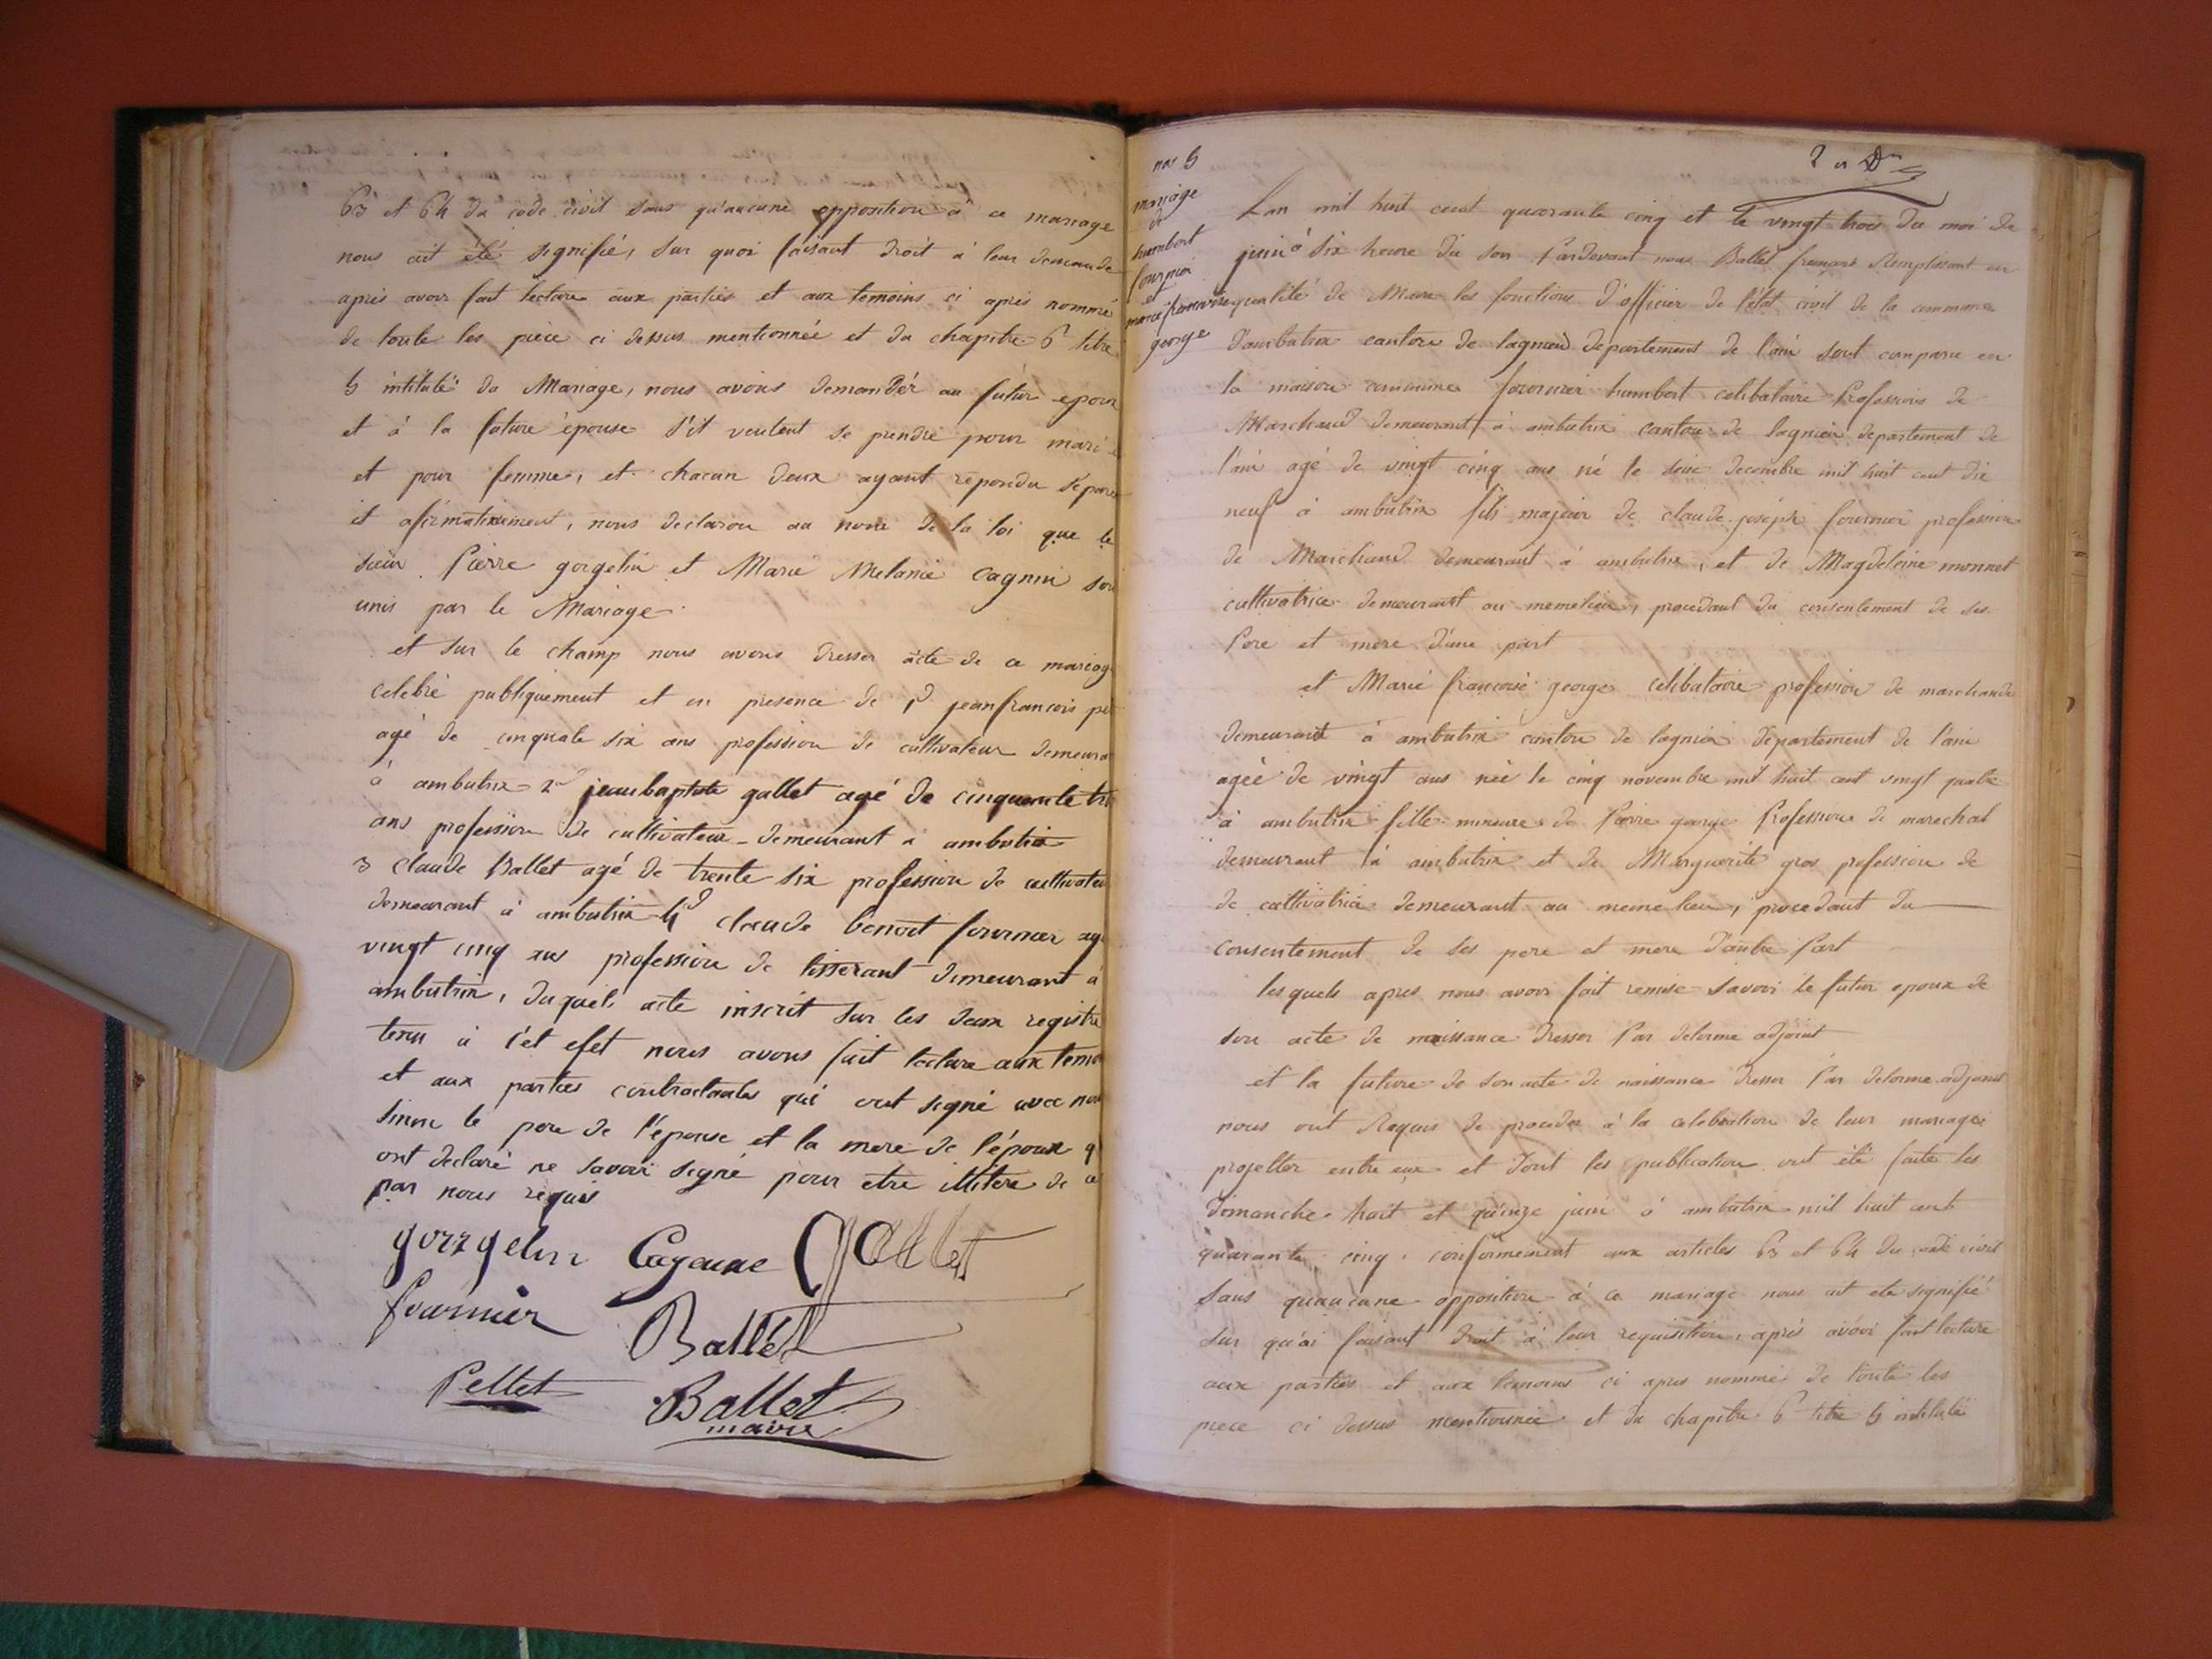 63 et 64 du code civil sans qu'aucune opposition à ce mariage
nous ait été signifié, sur quoi faisant droit à leur demande
après avoir fait lecture aux parties et aux temoins ci après nommé
de toute les pièce ci dessus mentionnée et du chapitre 6 titre
5 intitulé du Mariage, nous avons demander au futur epoux
et à la future épouse s'il veulent se prendre pour mari
et pour femme, et chacun deux ayant repondu séparé
et afirmativement, nous declaron au nom de la loi que le
sieur Pierre gorgelin et Marie Melanie Cagnin son
unis par le Mariage
et sur le champ nous avons dresser acte de ce mariag
celebré publiquement et en presence de jean francois
agé de cinquate six ans profession de cultivateur demeura
à ambutrix 2 jean baptiste gallet agé de cinquante
ans profession de cultivateur demeurant à ambutrix
3 claude Ballet agé de trente six profession de cultivateu
demeurant à ambutrix 4 claude benoit fournier ag
vingt cinq ans profession de tisserant demeurant à
ambutrix, duquel acte inscrit sur les deux registre
tenu à cèt efet nous avons fait lecture aux temo
et aux parties contractantes qui ont signé avec nou
sinon le pere de l'épouse et la mere de l'époux q
ont declaré ne savoir signé pour etre illitere de ce
par nous requis
gorrgelin Cagnine Gallet
fournier Ballet
Pellet Ballet
maire
5
mariage
de
humbert
fournier
et
marie francoise
george
Lan mil huit cent quarante cinq et le vingt trois du moi de
juin à six heure du soir Pardevant nous Ballet Remplissant en
qualité de Maire les fonctions d'officier de l'état civil de la commune
d'ambutrix canton de lagnieu departement de l'ain sont comparu en
la maison commune fournier humbert celibataire Profession de
Marchand demeurant à ambutrix canton de lagnieu departement de
l'ain agé de vingt cinq ans né le seize decembre mil huit cent dix
neuf à ambutrix fils majeur de claude joseph fournier profession
de Marchand demeurant à ambutrix, et de Magdeleine monnet
cultivatrice demeurant au memelieu, procedant du consentement de ses
Pere et mere d'une part
et Marie francoise george celibataire profession de marchande
demeurant à ambutrix canton de lagnieu département de l'ain
agée de vingt ans née le cinq novembre mil huit cent vingt quatre
à ambutrix fille mineure de Pierre george Profession de marechal
demeurant à ambutrix et de Marguerite gros profession de
de cultivatrice demeurant au meme lieu, procedant du
consentement de ses pere et mere d'autre Part
lesquels apres nous avoir fait remise savoir le futur epoux de
son acte de naissance dresser Par delorme adjoint
et la future de son acte de naissance dresser Par delorme adjoint
nous ont Requis de proceder à la celebration de leur mariage
projetter entre eux et dont les publication ont été faite les
dimanche huit et quinze juin à ambutrix mil huit cent
quarante cinq, conformement aux articles 63 et 64 du code civil
sans quaucune opposition à ce mariage nous ait été signifié
sur quoi faisant droit à leur requisition, après avoir fait lecture
aux parties et aux temoins ci apres nommé de toute les
piece ci dessus mentionnée et du chapitre 6 titre 5 intitulé